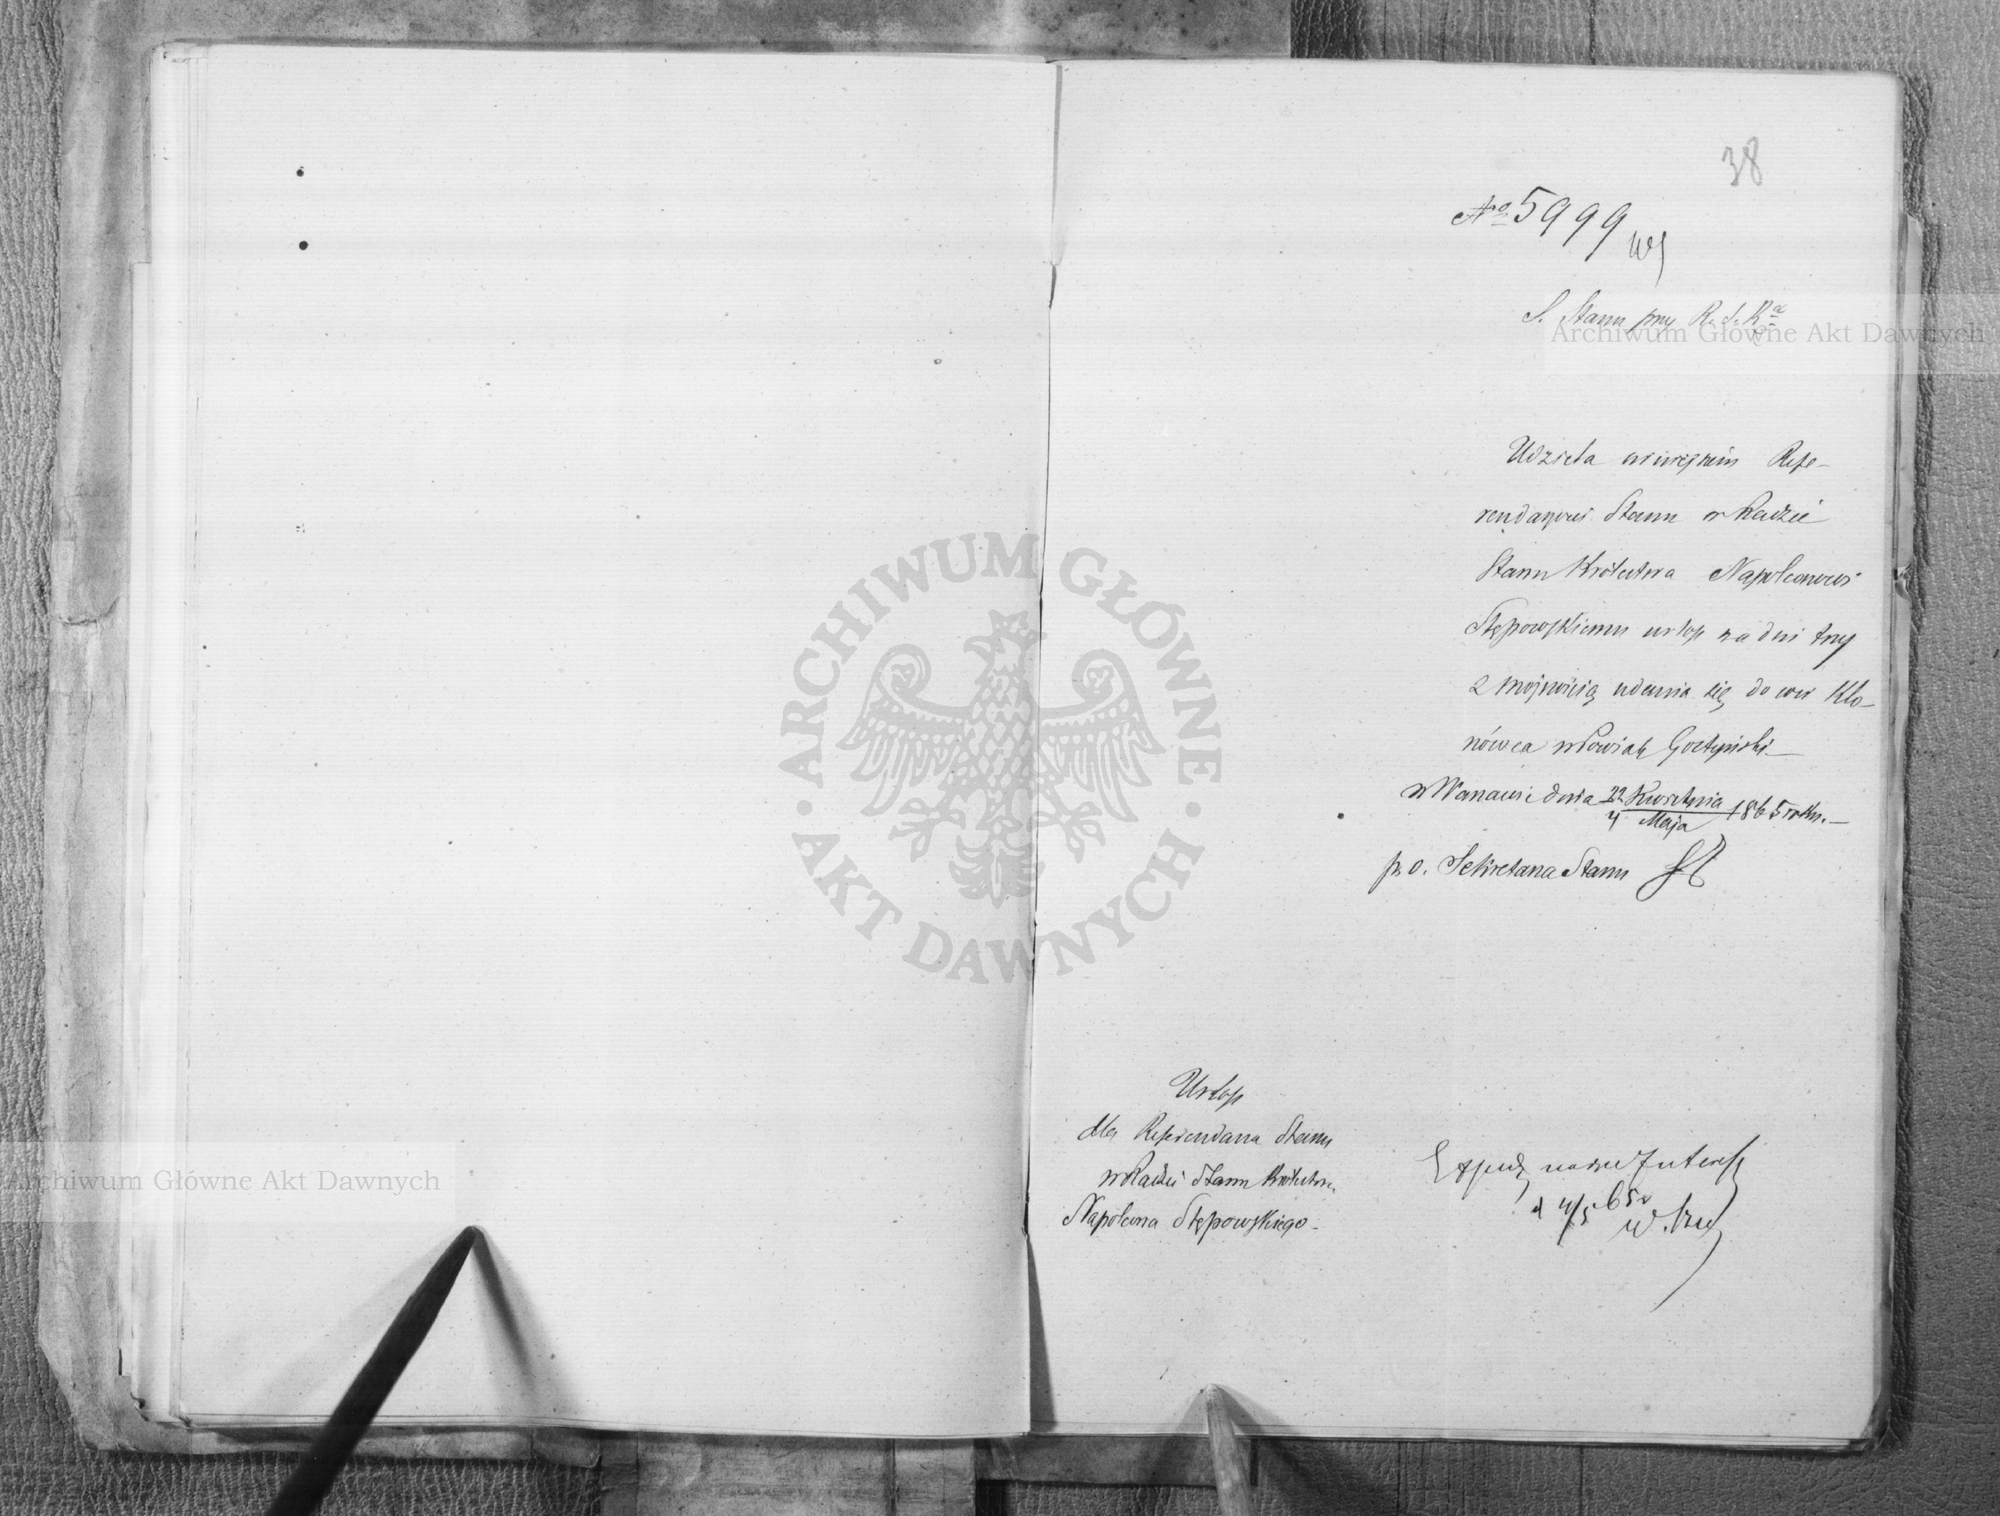 38
№ 5999
S. Stanu przy R. S. Kª
Udziela niniejszém Refe-
rendarzowi Stanu w Radzie
Stanu Królestwa Napoleonowi
Stępowskiemu urlop na dni trzy
z możnością udania się do wsi Kło-
nówca w Powiat Gostyński.—
w Warszawie dnia 22 Kwietnia / 4 Maja 1865 roku.—
p. o. Sekretarza Stanu
Urlop
dla Referendarza Stanu
w Radzie Stanu Królestwa
Napoleona Stępowskiego.-
d 4/5 65 r
Archiwum Główne Akt Dawnych
Archiwum Główne Akt Dawnych
· ARCHIWUM GŁÓWNE · AKT DAWNYCH